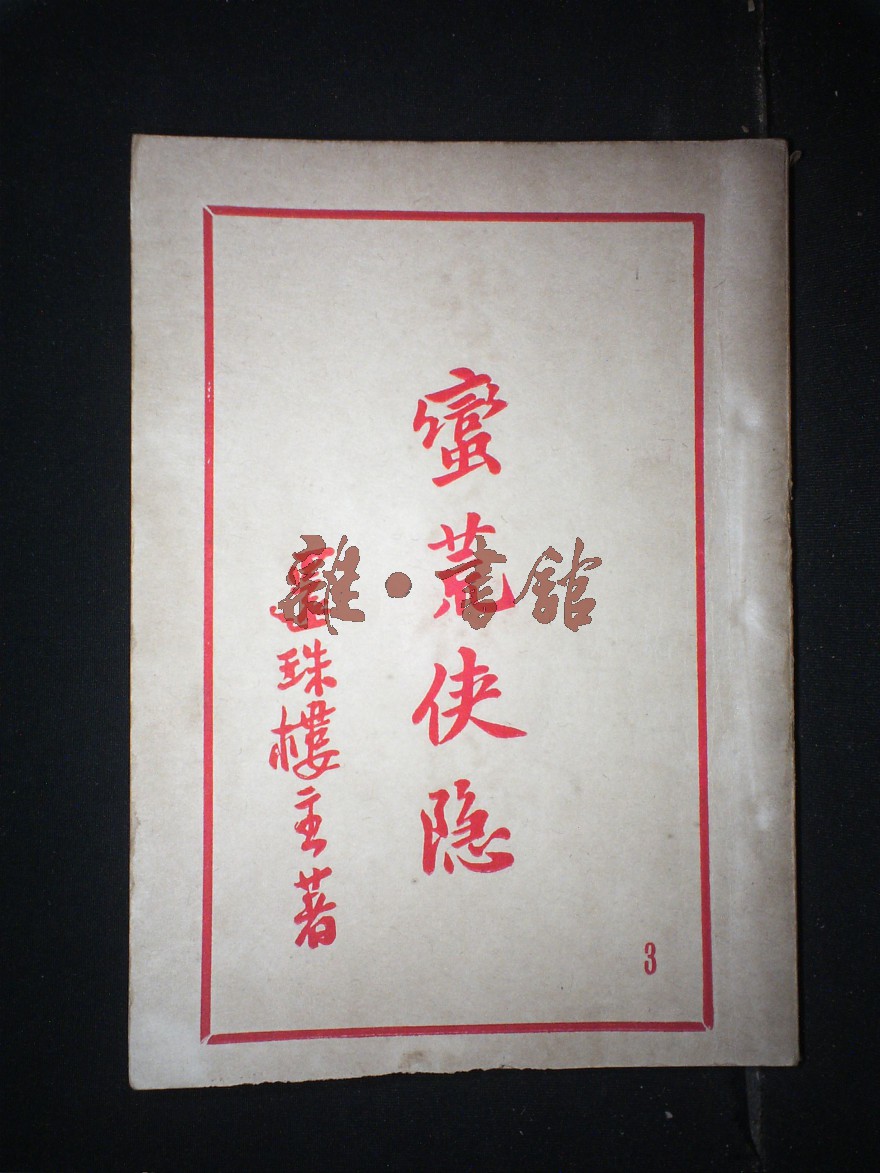 蠻荒侠隐
還珠樓主著
3
雜·書館